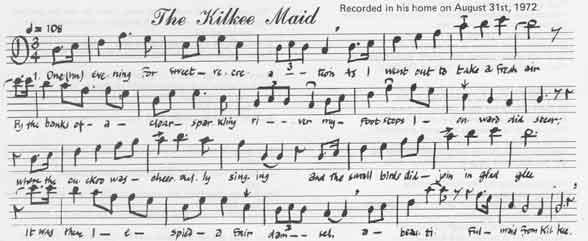 The Kilkee Maid
Recorded in his home on August 31st, 1972
♩= 108
3
4
1. One(nn) eve-ning for sweet-re-cre-a-tion As I went out to take a fresh air
3
By the banks of-a-clear-spar-kling ri-ver my-foot steps I-on-ward did steer;
3
where the cu-ckoo was-cheer-ful-ly sing-ing and the small birds did-join in glad glee
It was there I-e-spied-a fair dam-sel, a-beau-ti-ful-maid from Kil kee.